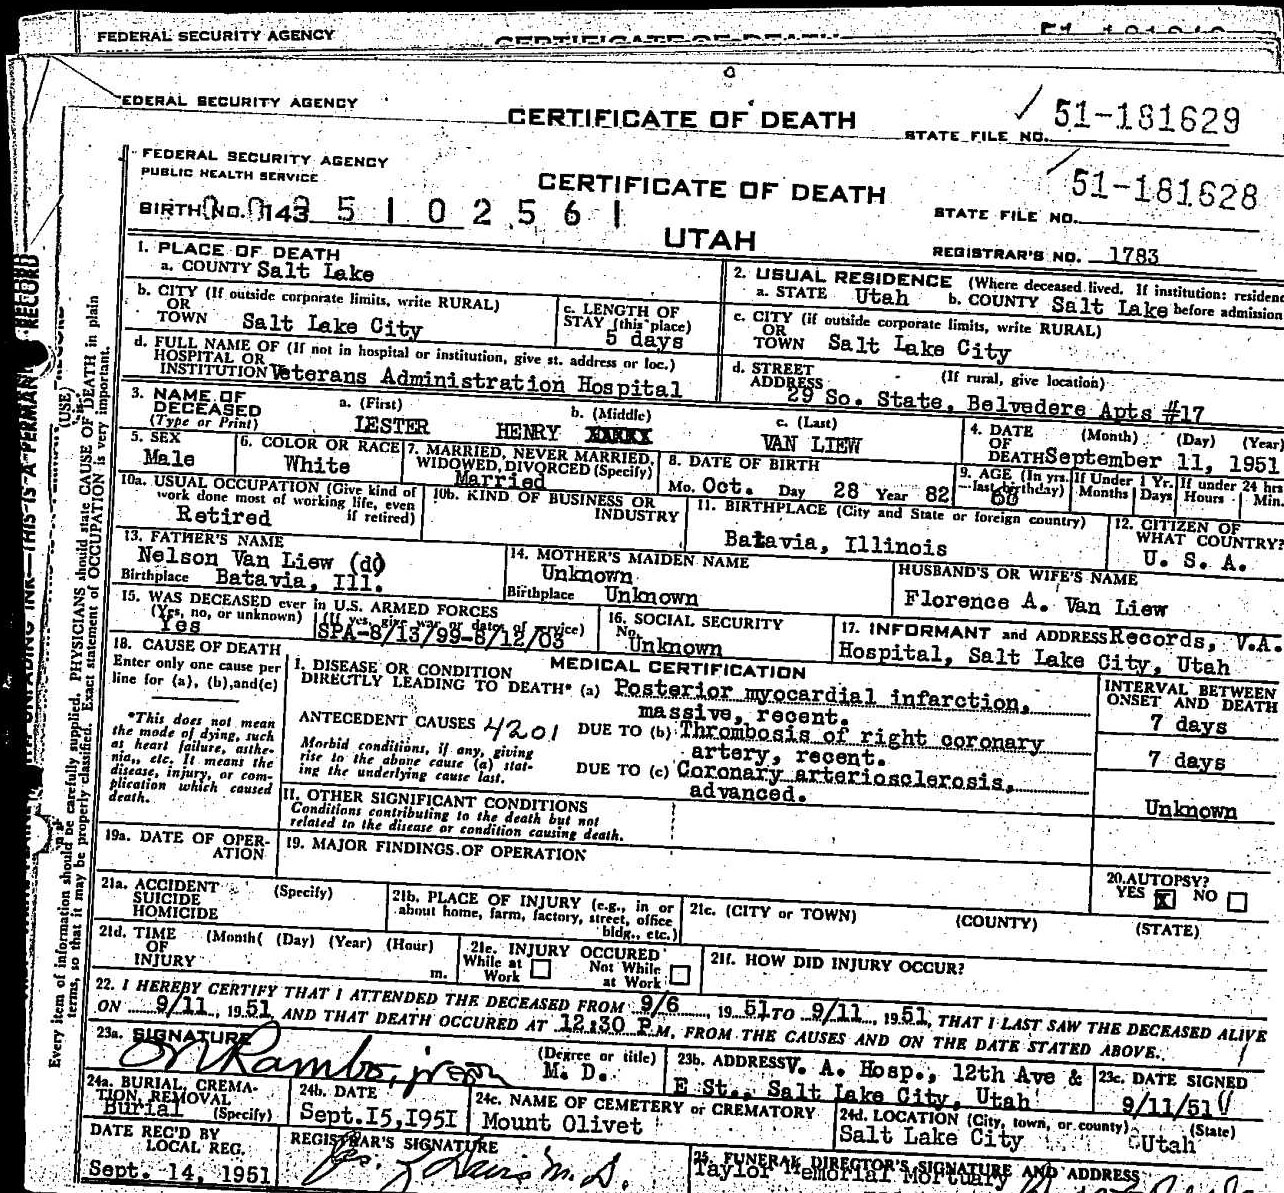 FEDERAL SECURITY AGENCY
CERTIFICATE OF DEATH
FEDERAL SECURITY AGENCY
CERTIFICATE OF DEATH
STATE FILE NO. 51-181629
FEDERAL SECURITY AGENCY
PUBLIC HEALTH SERVICE
CERTIFICATE OF DEATH
51-181628
STATE FILE NO.
BIRTH NO. 143 5102561
UTAH
REGISTRAR'S NO. 1783
1. PLACE OF DEATH
a. COUNTY Salt Lake
2. USUAL RESIDENCE (Where deceased lived. If institution: residence
a. STATE Utah b. COUNTY Salt Lake before admission
b. CITY (If outside corporate limits, write RURAL)
OR
TOWN Salt Lake City
c. LENGTH OF
STAY (this place)
5 days
c. CITY (if outside corporate limits, write RURAL)
OR
TOWN Salt Lake City
d. FULL NAME OF (If not in hospital or institution, give st. address or loc.)
HOSPITAL OR
INSTITUTION Veterans Administration Hospital
d. STREET (If rural, give location)
ADDRESS
29 So. State, Belvedere Apts #17
3. NAME OF
DECEASED
(Type or Print)
a. (First) b. (Middle) c. (Last)
LESTER HENRY VAN LIEW
4. DATE (Month) (Day) (Year)
OF
DEATH September 11, 1951
5. SEX
Male
6. COLOR OR RACE
White
7. MARRIED, NEVER MARRIED,
WIDOWED, DIVORCED (Specify)
Married
8. DATE OF BIRTH
Mo. Oct. Day 28 Year 82
9. AGE (In yrs.
last birthday)
68
If Under 1 Yr.
Months Days
If under 24 hrs
Hours Min.
10a. USUAL OCCUPATION (Give kind of
work done most of working life, even
if retired)
Retired
10b. KIND OF BUSINESS OR
INDUSTRY
11. BIRTHPLACE (City and State or foreign country)
Batavia, Illinois
12. CITIZEN OF
WHAT COUNTRY?
U. S. A.
13. FATHER'S NAME
Nelson Van Liew (d)
Birthplace Batavia, Ill.
14. MOTHER'S MAIDEN NAME
Unknown
Birthplace Unknown
HUSBAND'S OR WIFE'S NAME
Florence A. Van Liew
15. WAS DECEASED ever in U.S. ARMED FORCES
(Yes, no, or unknown) (If yes, give war or dates of service)
Yes SPA-8/13/99-8/12/03
16. SOCIAL SECURITY
No.
Unknown
17. INFORMANT and ADDRESS Records, V.A.
Hospital, Salt Lake City, Utah
18. CAUSE OF DEATH
Enter only one cause per
line for (a), (b), and (c)
*This does not mean
the mode of dying, such
as heart failure, asthe-
nia, etc. It means the
disease, injury, or com-
plication which caused
death.
MEDICAL CERTIFICATION
I. DISEASE OR CONDITION
DIRECTLY LEADING TO DEATH* (a) Posterior myocardial infarction,
massive, recent.
ANTECEDENT CAUSES 4201 DUE TO (b) Thrombosis of right coronary
artery, recent.
Morbid conditions, if any, giving
rise to the above cause (a) stat-
ing the underlying cause last.
DUE TO (c) Coronary arteriosclerosis,
advanced.
INTERVAL BETWEEN
ONSET AND DEATH
7 days
7 days
Unknown
II. OTHER SIGNIFICANT CONDITIONS
Conditions contributing to the death but not
related to the disease or condition causing death.
19a. DATE OF OPER-
ATION
19. MAJOR FINDINGS OF OPERATION
20. AUTOPSY?
YES X NO
21a. ACCIDENT (Specify)
SUICIDE
HOMICIDE
21b. PLACE OF INJURY (e.g., in or
about home, farm, factory, street, office
bldg., etc.)
21c. (CITY or TOWN) (COUNTY) (STATE)
21d. TIME (Month( (Day) (Year) (Hour)
OF
INJURY m.
21e. INJURY OCCURED
While at Work Not While at Work
21f. HOW DID INJURY OCCUR?
22. I HEREBY CERTIFY THAT I ATTENDED THE DECEASED FROM 9/6, 1951 TO 9/11, 1951, THAT I LAST SAW THE DECEASED ALIVE
ON 9/11, 1951, AND THAT DEATH OCCURED AT 12:30 P.M. FROM THE CAUSES AND ON THE DATE STATED ABOVE.
23a. SIGNATURE (Degree or title)
M. D.
23b. ADDRESS V. A. Hosp., 12th Ave &
E St., Salt Lake City, Utah
23c. DATE SIGNED
9/11/51
24a. BURIAL, CREMA-
TION, REMOVAL
Burial (Specify)
24b. DATE
Sept.15,1951
24c. NAME OF CEMETERY or CREMATORY
Mount Olivet
24d. LOCATION (City, town, or county) (State)
Salt Lake City Utah
DATE REC'D BY
LOCAL REG.
Sept. 14, 1951
REGISTRAR'S SIGNATURE
25. FUNERAL DIRECTOR'S SIGNATURE AND ADDRESS
Taylor Memorial Mortuary
Every item of information should be carefully supplied. PHYSICIANS should state CAUSE OF DEATH in plain
terms, so that it may be properly classified. Exact statement of OCCUPATION is very important.